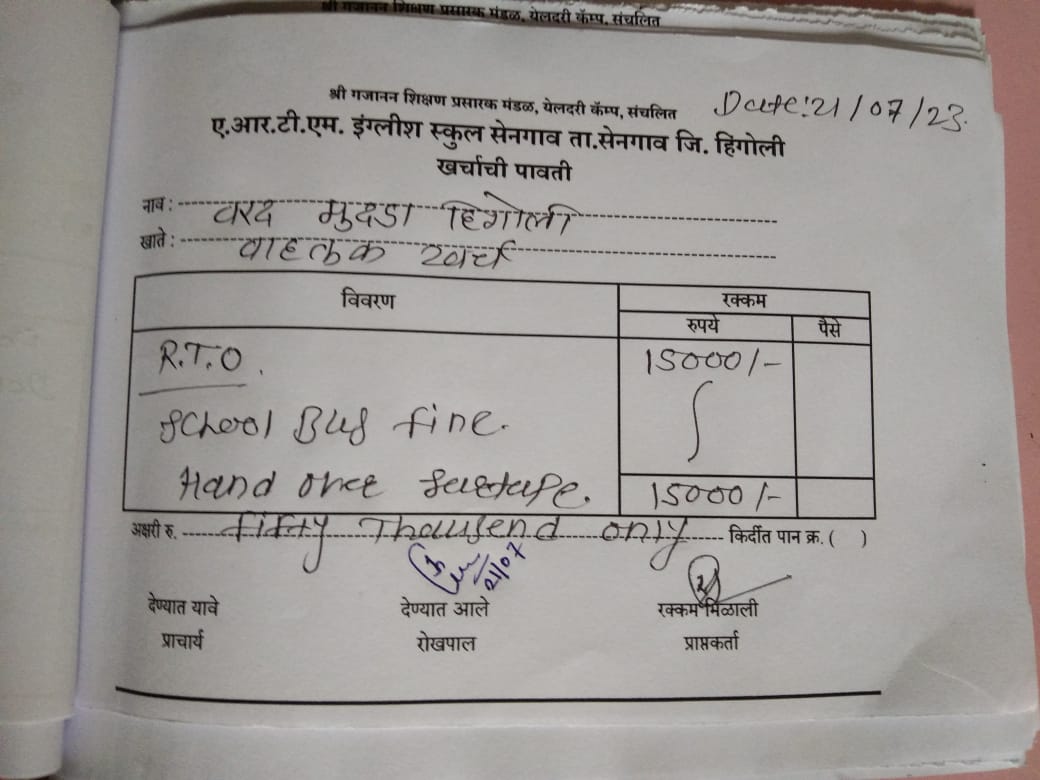 श्री गजानन शिक्षण प्रसारक मंडळ, येलदरी कॅम्प, संचलित
श्री गजानन शिक्षण प्रसारक मंडळ, येलदरी कॅम्प, संचलित Date:21/07/23.
ए.आर.टी.एम. इंग्लीश स्कुल सेनगाव ता.सेनगाव जि. हिंगोली
खर्चाची पावती
नाव : वरद मुदडा हिगोली
खाते : वाहतुक खर्च
विवरण रक्कम
रुपये पैसे
R.T.O. 15000/-
School Bus fine.
Hand over 15000/-
अक्षरी रु. fifty Thausend only किर्दीत पान क्र. ( )
21/07
देण्यात यावे देण्यात आले रक्कम मिळाली
प्राचार्य रोखपाल प्राप्तकर्ता